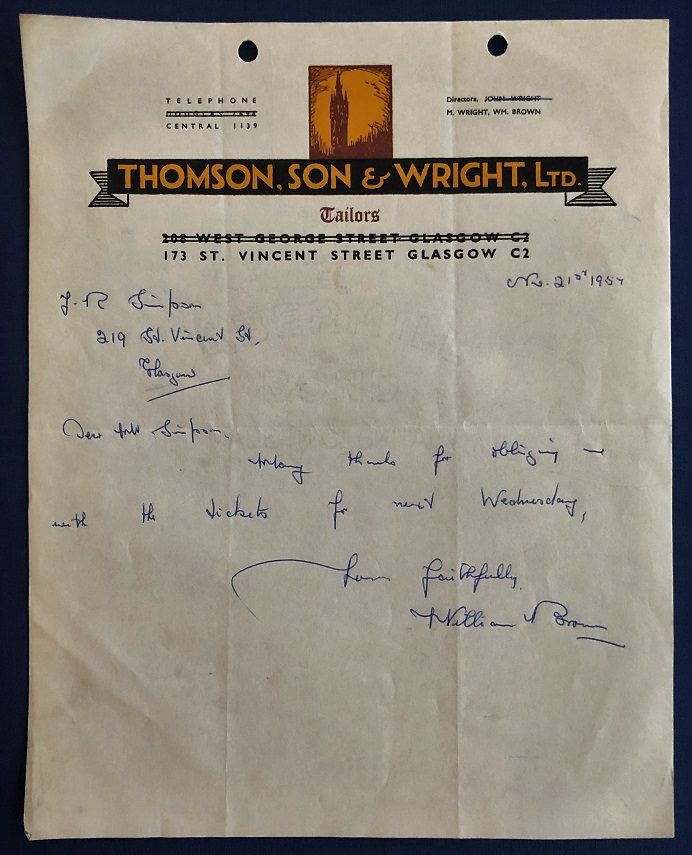 TELEPHONE
CENTRAL 1139
Directors, JOHN WRIGHT
M. WRIGHT, WM. BROWN
THOMSON, SON & WRIGHT, LTD.
Tailors
208 WEST GEORGE STREET GLASGOW C2
173 ST. VINCENT STREET GLASGOW C2
Nov. 21st 1957
J. R Simpson
219 St. Vincent St.
Glasgow
Dear Mr Simpson.
Many thanks for obliging me
with the tickets for next Wednesday,
Yours faithfully.
William Brown